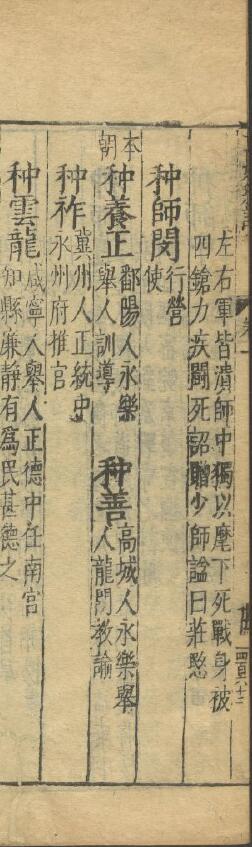 左右軍皆潰師中獨以麾下死戰身被
四鎗力疾鬬死詔贈少師諡曰莊愍
种師閔行營
使
本
朝
种養正鄱陽人永樂
舉人訓導
种善高城人永樂舉
人龍門教諭
种祚冀州人正統中
永州府推官
种雲龍咸寧人舉人正德中任南宮
知縣廉靜有爲民甚德之